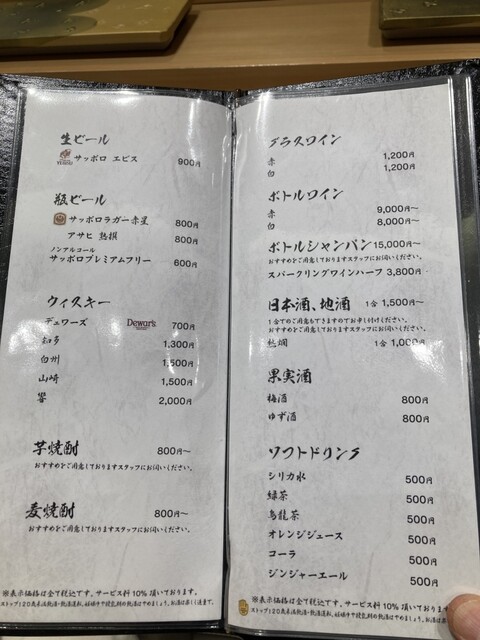 生ビール
サッポロ エビス 900円
瓶ビール
サッポロラガー赤星 800円
アサヒ 熟撰 800円
ノンアルコール
サッポロプレミアムフリー 600円
ウィスキー
デュワーズ Dewar's 700円
知多 1,300円
白州 1,500円
山崎 1,500円
響 2,000円
芋焼酎 800円〜
おすすめをご用意しておりますスタッフにお伺いください。
麦焼酎 800円〜
おすすめをご用意しておりますスタッフにお伺いください。
※表示価格は全て税込です。サービス料10%頂いております。
ストップ!20歳未満飲酒・飲酒運転。妊娠中や授乳期の飲酒はやめましょう。お酒は楽しく適量で。
グラスワイン
赤 1,200円
白 1,200円
ボトルワイン
赤 9,000円〜
白 8,000円〜
ボトルシャンパン 15,000円〜
おすすめをご用意しておりますスタッフにお伺いください。
スパークリングワインハーフ 3,800円
日本酒、地酒 1合 1,500円〜
1合でのご用意もできますのでお申し付けください。
おすすめをご用意しておりますスタッフにお伺いください。
熱燗 1合 1,000円
果実酒
梅酒 800円
ゆず酒 800円
ソフトドリンク
シリカ水 500円
緑茶 500円
烏龍茶 500円
オレンジジュース 500円
コーラ 500円
ジンジャーエール 500円
※表示価格は全て税込です。サービス料10%頂いております。
ストップ!20歳未満飲酒・飲酒運転。妊娠中や授乳期の飲酒はやめましょう。お酒は